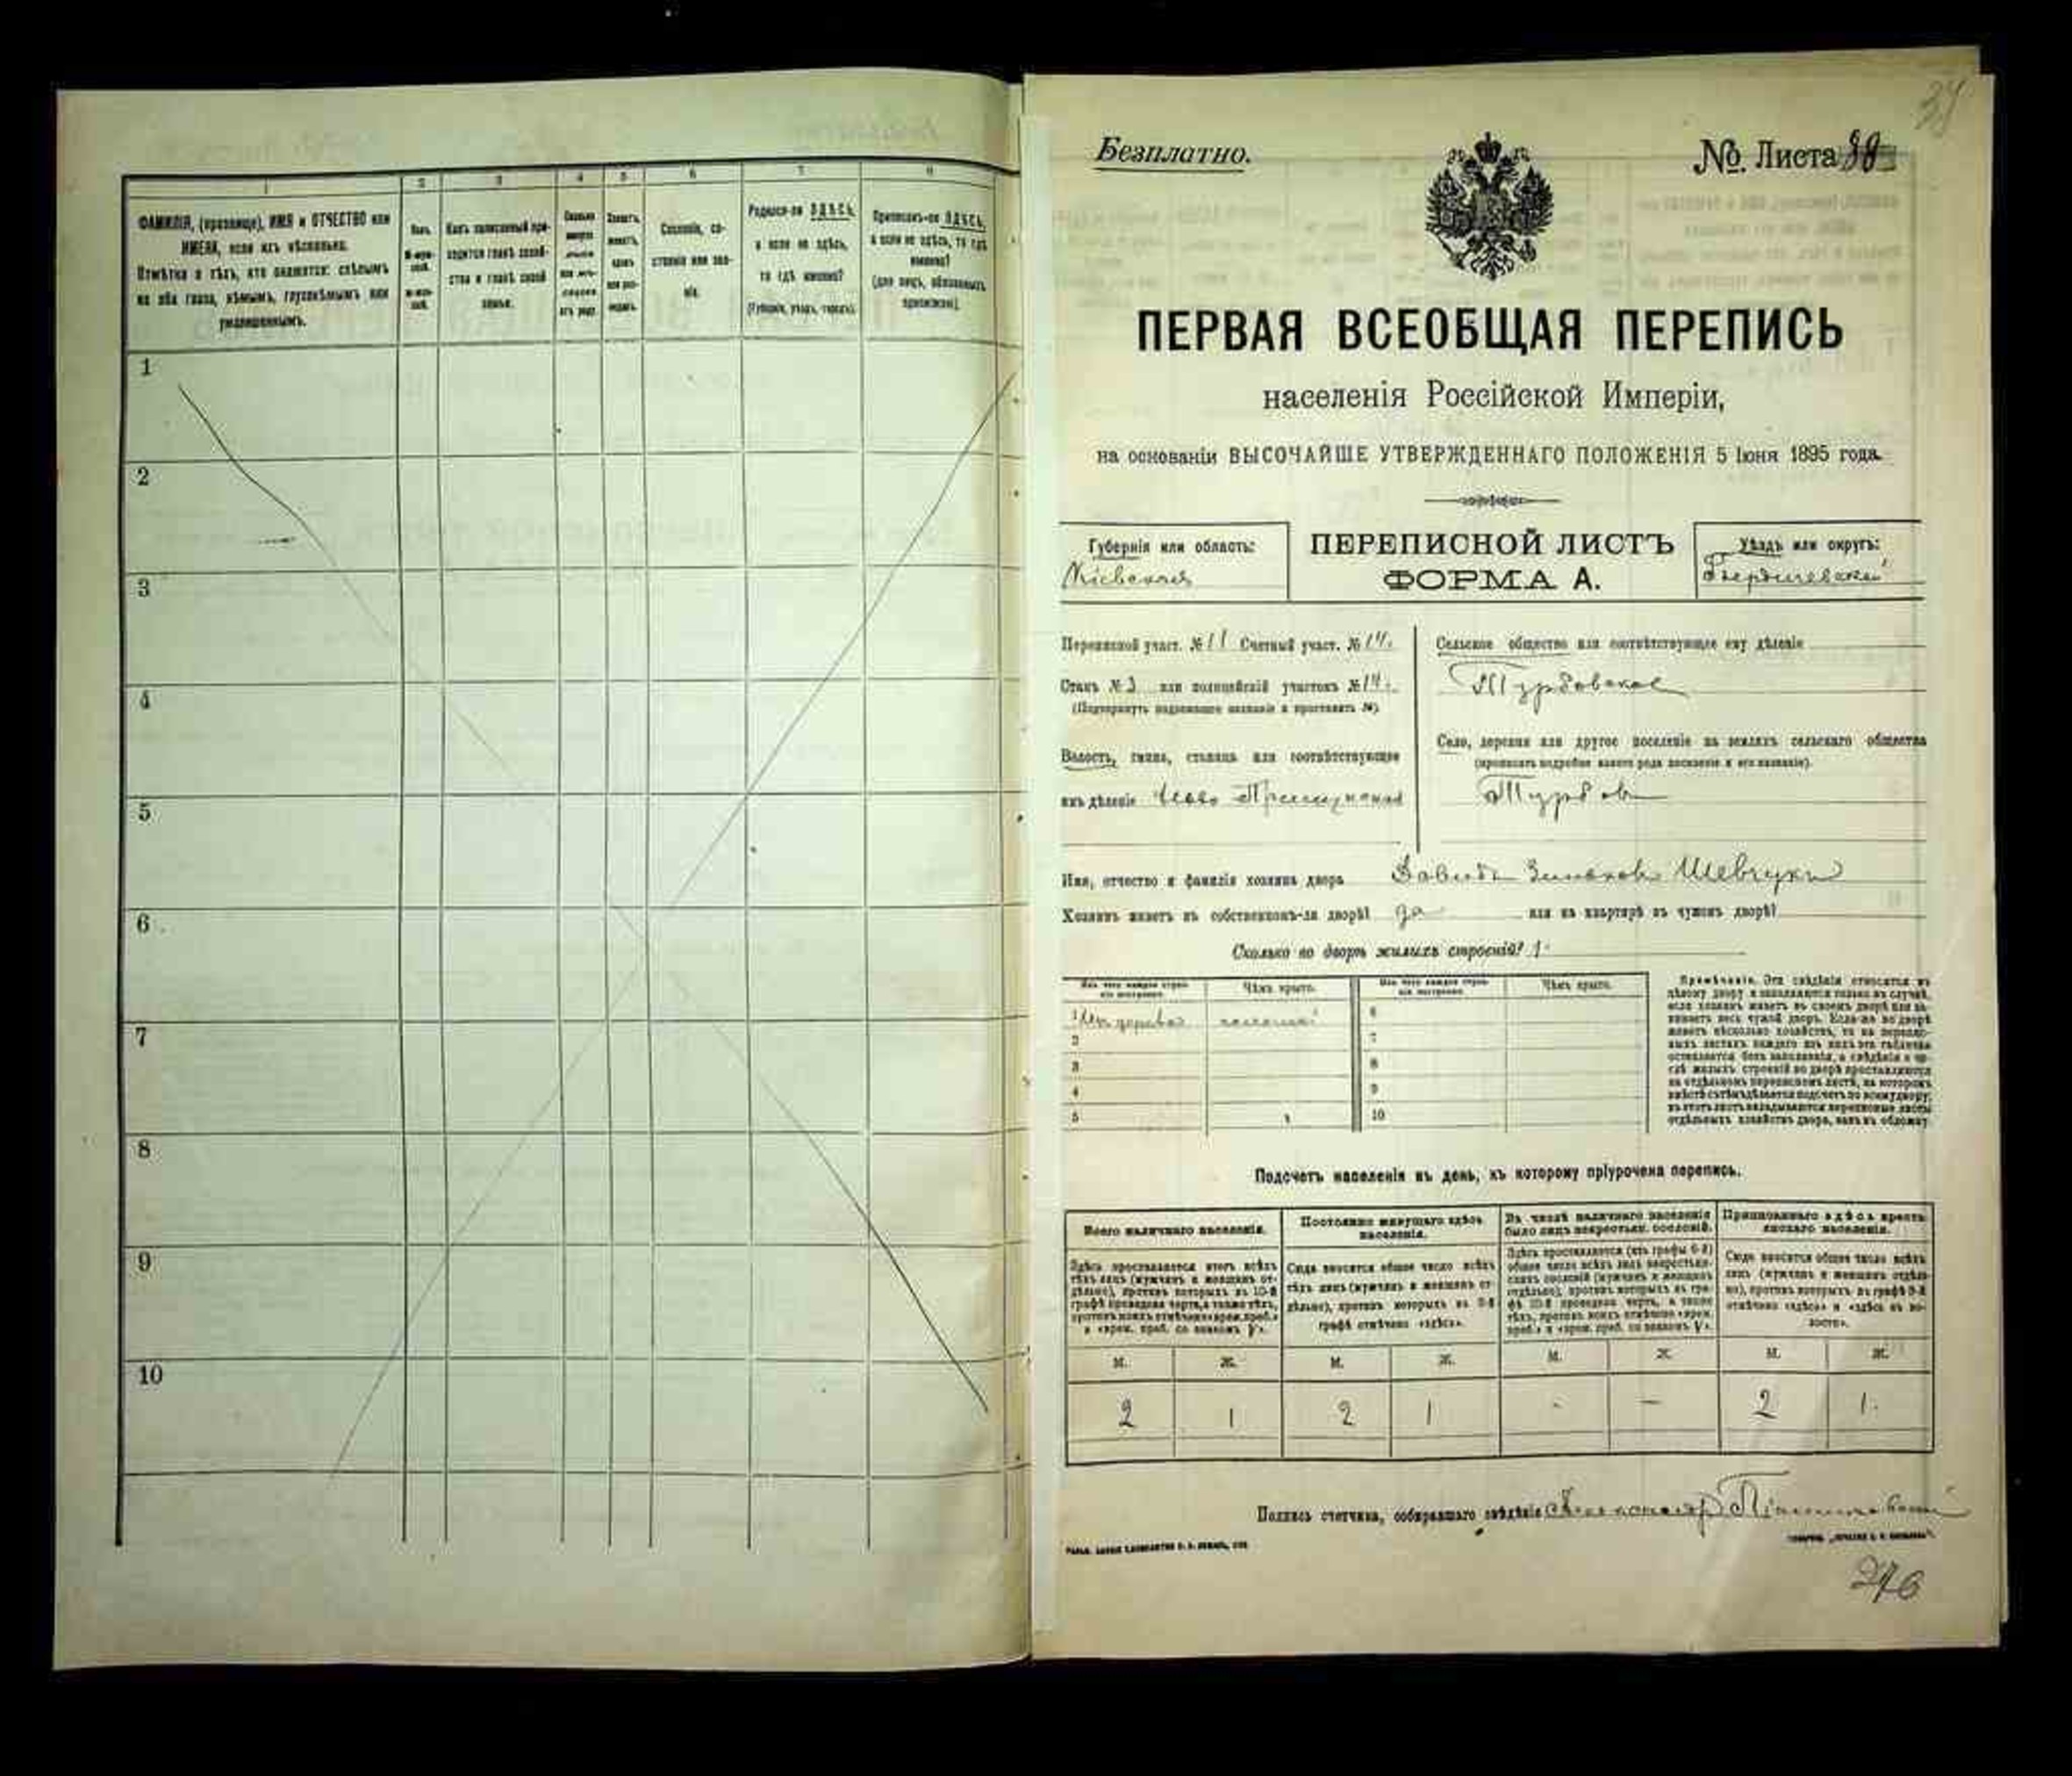 1 2 3 4 5 6 7 8
ФАМИЛІЯ, (прозвище), ИМЯ и ОТЧЕСТВО или
ИМЕНА, если ихъ нѣсколько.
Отмѣтка о тѣхъ, кто окажется: слѣпымъ
на оба глаза, нѣмымъ, глухонѣмымъ или
умалишеннымъ.
Какъ записанный при-
ходится главѣ хозяй-
ства и главѣ своей
семьи.
Сословіе, со-
стояніе или зва-
ніе.
Родился-ли ЗДѢСЬ,
а если не здѣсь,
то гдѣ именно?
(Губернія, уѣздъ, городъ).
Приписанъ-ли ЗДѢСЬ,
а если не здѣсь, то гдѣ
именно?
(для лицъ, обязанныхъ
припискою).
1
2
3
4
5
6
7
8
9
10
Безплатно.
№ Листа
ПЕРВАЯ ВСЕОБЩАЯ ПЕРЕПИСЬ
населенія Россійской Имперіи,
на основаніи ВЫСОЧАЙШЕ УТВЕРЖДЕННАГО ПОЛОЖЕНІЯ 5 Іюня 1895 года.
Губернія или область:
Кіевская
ПЕРЕПИСНОЙ ЛИСТЪ
ФОРМА А.
Уѣздъ или округъ:
Бердичевскій
Переписной участ. № 11 Счетный участ. № 14.
Станъ № 3 или полицейскій участокъ № 14.
(Подчеркнуть надлежащее названіе и проставить №)
Волость, гмина, станица или соотвѣтствующее
имъ дѣленіе
Сельское общество или соотвѣтствующее ему дѣленіе
Турбовское
Село, деревня или другое поселеніе на земляхъ сельскаго общества
(прописать подробно какого рода поселеніе и его названіе).
Турбов
Имя, отчество и фамилія хозяина двора Давидъ Шевчукъ
Хозяинъ живетъ въ собственномъ-ли дворѣ? да или на квартирѣ въ чужомъ дворѣ?
Сколько во дворѣ жилыхъ строеній? 1
Изъ чего каждое строе-
ніе построено.
Чѣмъ крыто.
Изъ чего каждое строе-
ніе построено.
Чѣмъ крыто.
1 Изъ дерева соломой 6
2 7
3 8
4 9
5 10
Примѣчаніе. Эти свѣдѣнія относятся къ
цѣлому двору и заполняются только въ случаѣ,
если хозяинъ живетъ въ своемъ дворѣ или за-
нимаетъ весь чужой дворъ. Если-же во дворѣ
живетъ нѣсколько хозяйствъ, то на перепис-
ныхъ листахъ каждаго изъ нихъ эта табличка
оставляется безъ заполненія, а свѣдѣнія о чи-
слѣ жилыхъ строеній во дворѣ проставляются
на отдѣльномъ переписномъ листѣ, на которомъ
вмѣстѣ съ тѣмъ дѣлается подсчетъ по всему двору;
въ этотъ листъ вкладываются переписные листы
отдѣльныхъ хозяйствъ двора, какъ въ обложку.
Подсчетъ населенія въ день, къ которому пріурочена перепись.
Всего наличнаго населенія.
Постоянно живущаго здѣсь
населенія.
Въ числѣ наличнаго населенія
было лицъ некрестьян. сословій.
Приписаннаго здѣсь кресть-
янскаго населенія.
Здѣсь проставляется итогъ всѣхъ
тѣхъ лицъ (мужчинъ и женщинъ от-
дѣльно), противъ которыхъ въ 10-й
графѣ проведена черта, а также тѣхъ,
противъ коихъ отмѣчено «врем. преб.»
и «врем. преб. со знакомъ V».
Сюда вносится общее число всѣхъ
тѣхъ лицъ (мужчинъ и женщинъ от-
дѣльно), противъ которыхъ въ 9-й
графѣ отмѣчено «здѣсь».
Здѣсь проставляется (изъ графы 6-й)
общее число всѣхъ лицъ некрестьян-
скихъ сословій (мужчинъ и женщинъ
отдѣльно), противъ которыхъ въ гра-
фѣ 10-й проведена черта, а также
тѣхъ, противъ коихъ отмѣчено «врем.
преб.» и «врем. преб. со знакомъ V».
Сюда вносится общее число всѣхъ
лицъ (мужчинъ и женщинъ отдѣль-
но), противъ которыхъ въ графѣ 8-й
отмѣчено «здѣсь» и «здѣсь въ во-
лости».
М. Ж. М. Ж. М. Ж. М. Ж.
2 1 2 1 - — 2 1.
Подпись счетчика, собиравшаго свѣдѣнія Александр
276